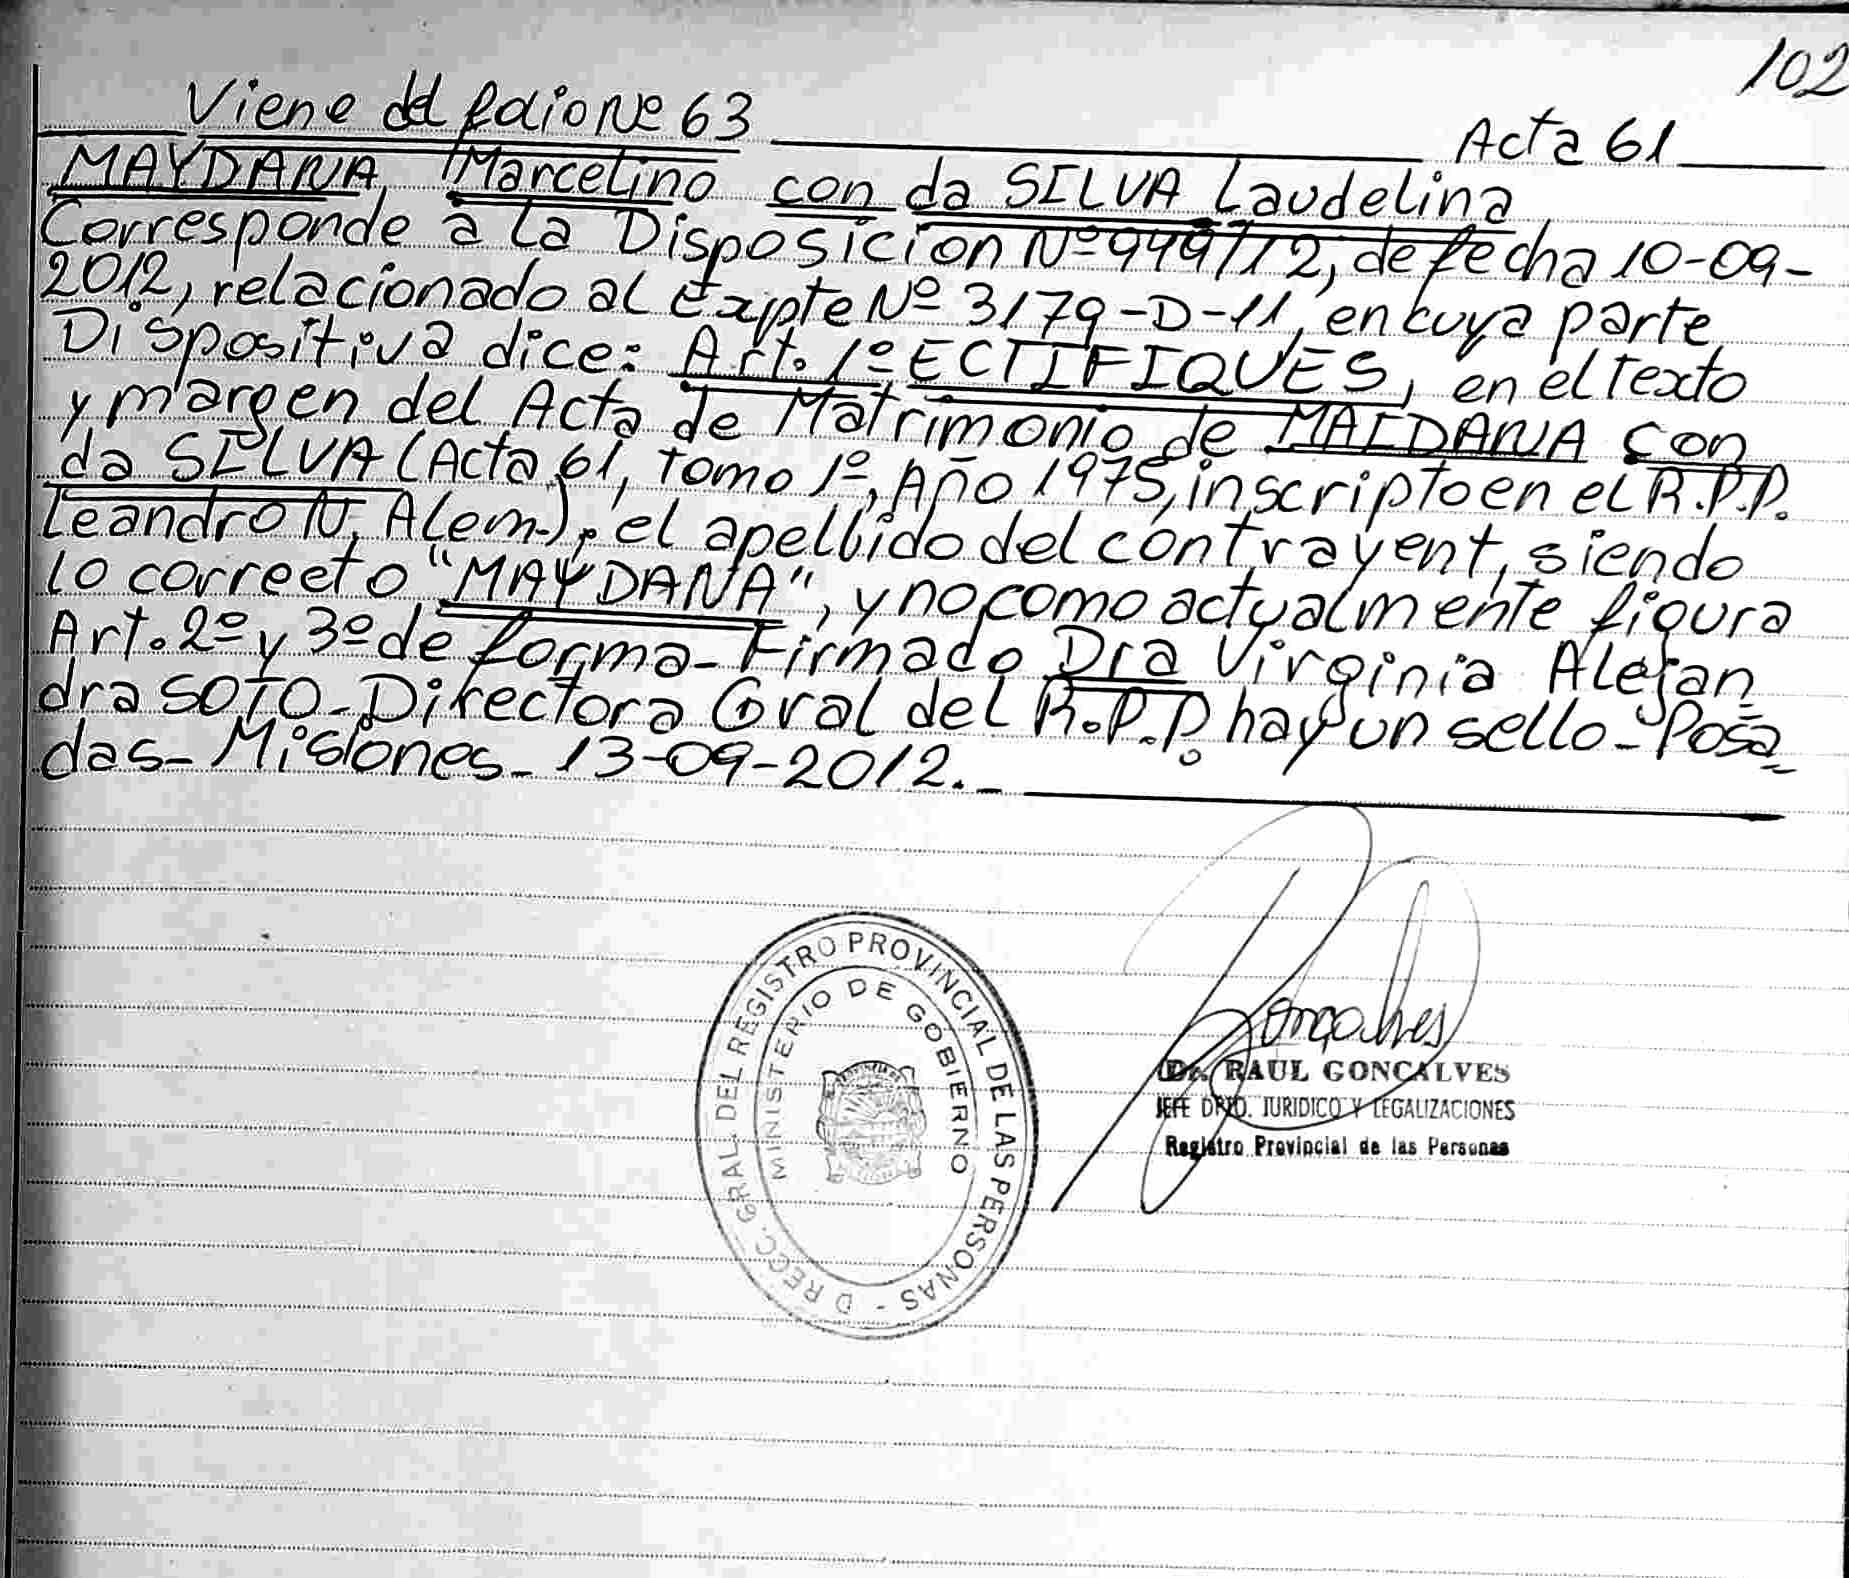 102
Viene del folio Nº 63 Acta 61
MAYDANA, Marcelino con da SILVA Laudelina
Corresponde a la Disposición Nº 949/12, de fecha 10-09-
2012, relacionado al Expte Nº 3179-D-11, en cuya parte
Dispositiva dice: Art. 1º ECTIFIQUES, en el Texto
y margen del Acta de Matrimonio de MAIDANA con
da SILVA (Acta 61, Tomo 1º, Año 1975, inscripto en el R.P.P.
Leandro N. Alem.), el apellido del contrayent, siendo
lo correcto "MAYDANA", y no como actualmente figura
Art. 2º y 3º de forma- Firmado Dra Virginia Alejan
dra SOTO- Directora Gral del R.P.P. hay un sello- Posa
das- Misiones- 13-09-2012.-
DRECC. GRAL DEL REGISTRO PROVINCIAL DE LAS PERSONAS -
MINISTERIO DE GOBIERNO
Goncalves
Dr. RAUL GONCALVES
JEFE DPTO. JURIDICO Y LEGALIZACIONES
Registro Provincial de las Personas